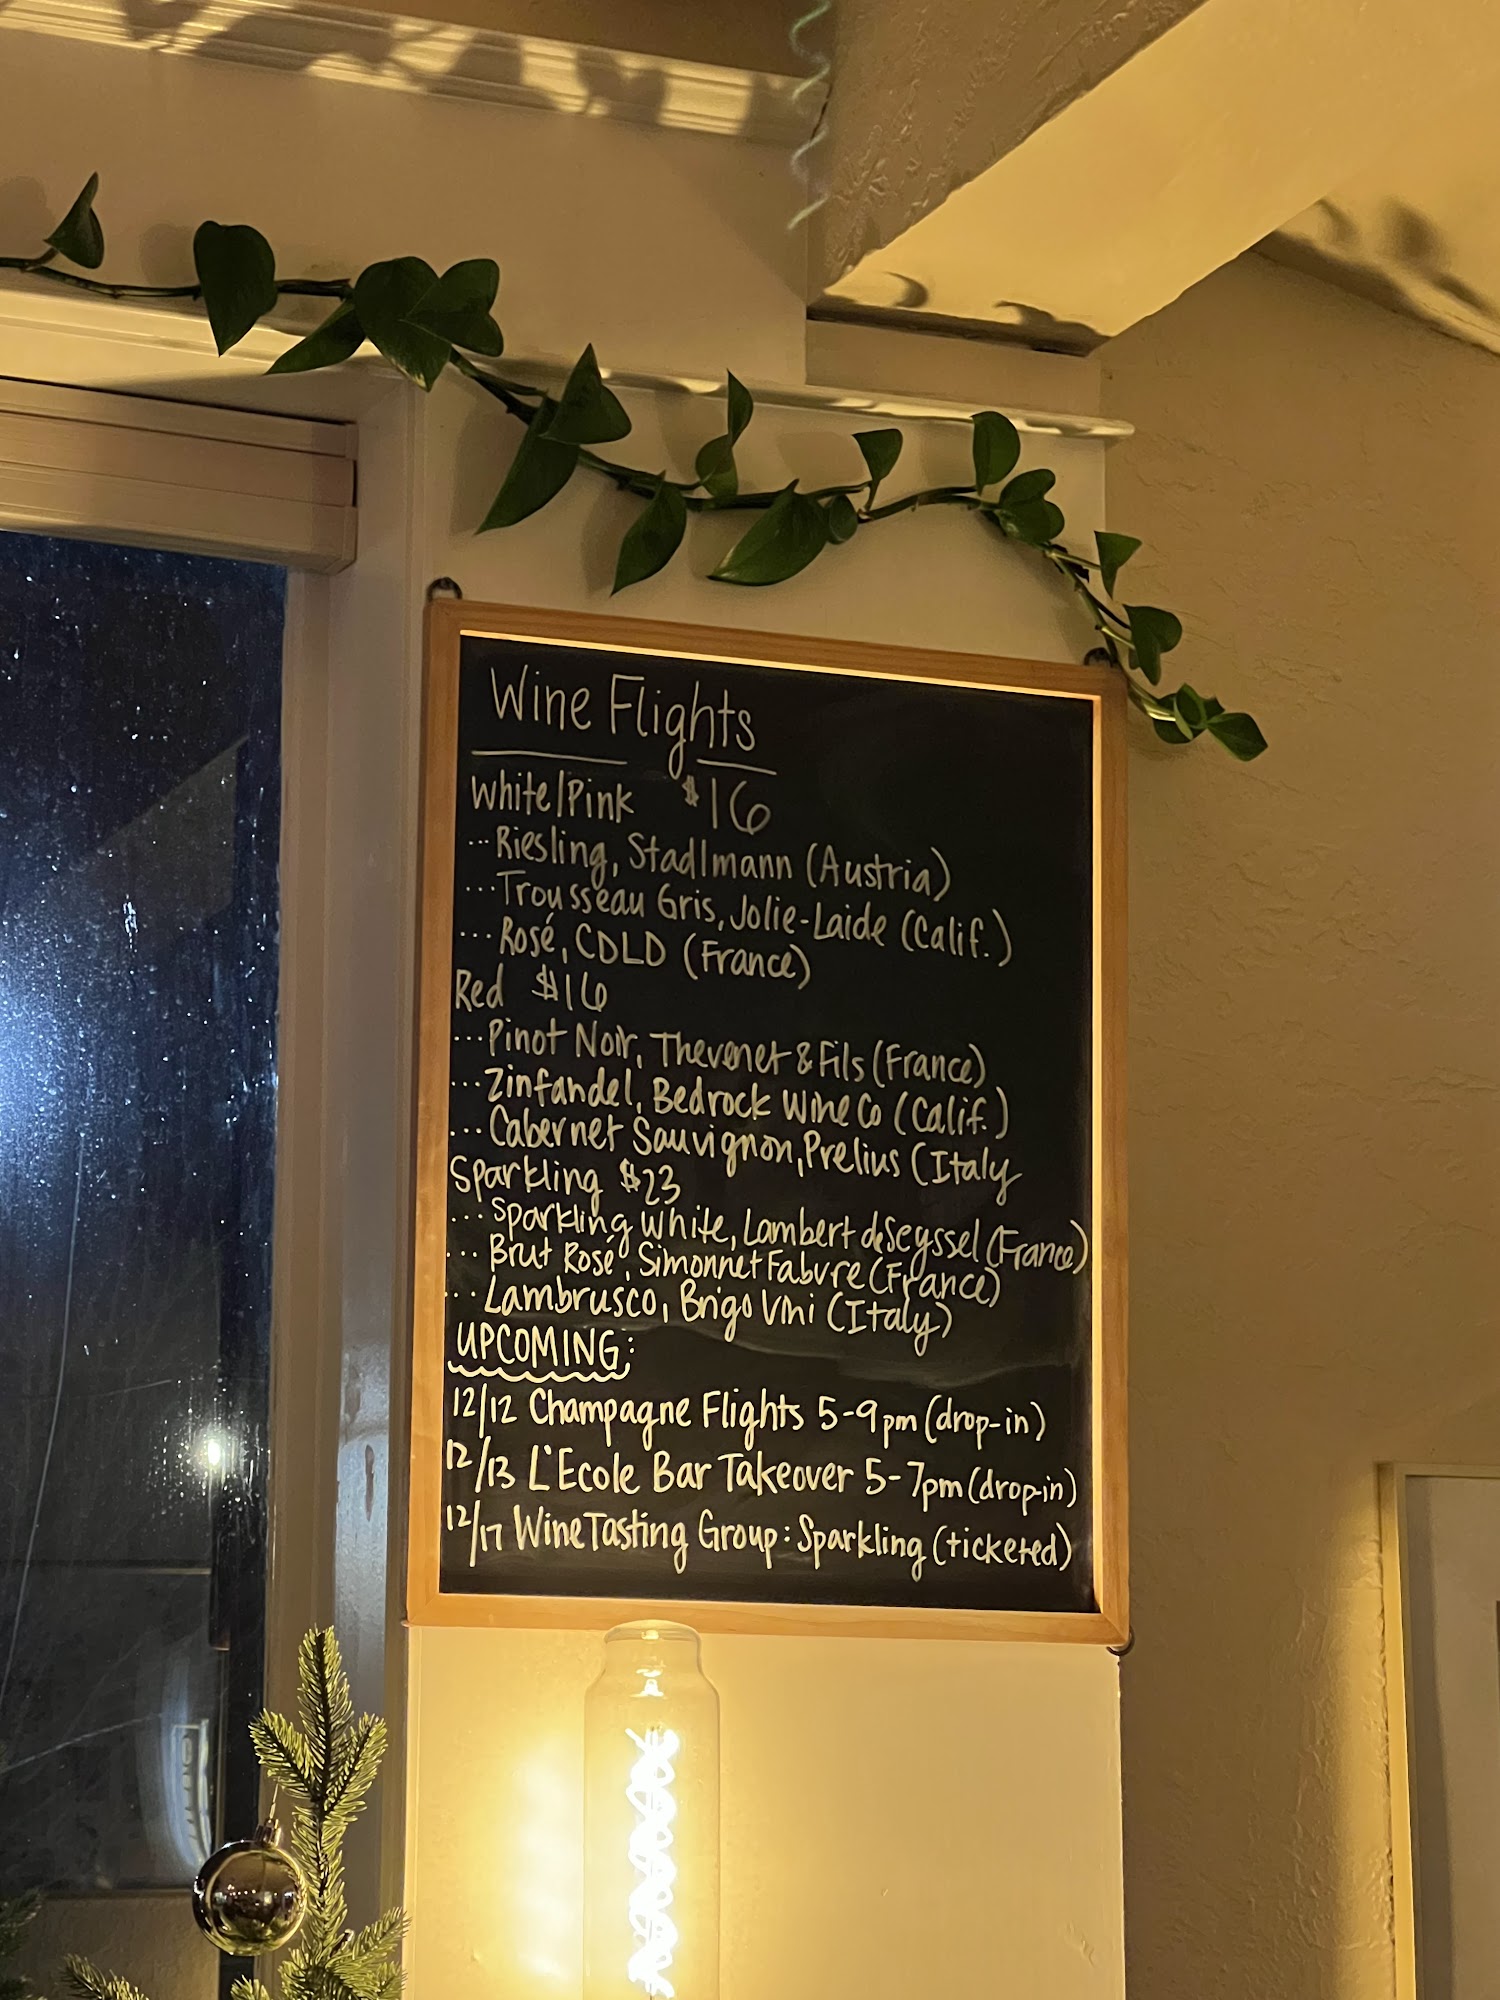 Wine Flights
White/Pink $16
...Riesling, Stadlmann (Austria)
...Trousseau Gris, Jolie-Laide (Calif.)
...Rosé, CDLD (France)
Red $16
...Pinot Noir, Thevenet & Fils (France)
...Zinfandel, Bedrock Wine Co (Calif.)
...Cabernet Sauvignon, Prelius (Italy
Sparkling $23
...Sparkling White, Lambert de Seyssel (France)
...Brut Rosé, Simonnet Fabvre (France)
...Lambrusco, Brigo Vini (Italy)
UPCOMING:
12/12 Champagne Flights 5-9pm (drop-in)
12/13 L'Ecole Bar Takeover 5-7pm (drop-in)
12/17 Wine Tasting Group: Sparkling (ticketed)